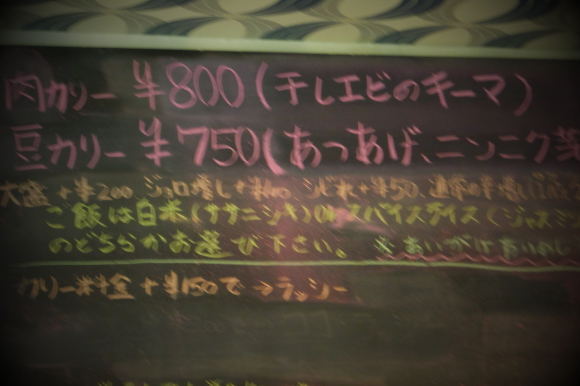 肉カリー ¥800(干しエビのキーマ)
豆カリー ¥750(あつあげ、ニンニク芽
大盛+¥200 ジャロ増し+¥100 シビれ+¥50
ご飯は白米(ササニシキ)orスパイスライス(ジャスミ
のどちらかお選び下さい。 ※あいがけ
カリー料金+¥150で→ラッシー